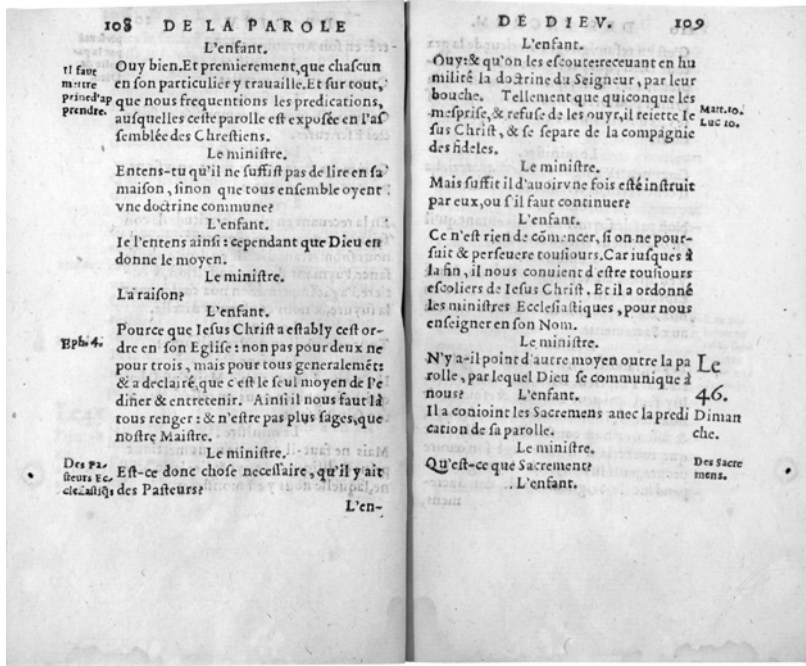 108 DE LA PAROLE
L'enfant.
Ouy bien. Et premierement, que chaſcun
Il faut
mettre
peine d'ap
prendre.
en ſon particulier y trauaille. Et ſur tout,
que nous frequentions les predications,
auſquelles ceſte parolle eſt expoſée en l'aſ
ſemblée des Chreſtiens.
Le miniſtre.
Entens-tu qu'il ne ſuffiſt pas de lire en ſa
maiſon, ſinon que tous enſemble oyent
vne doctrine commune?
L'enfant.
Ie l'entens ainſi: cependant que Dieu en
donne le moyen.
Le miniſtre.
La raiſon?
L'enfant.
Pource que Ieſus Chriſt a eſtably ceſt or-
Eph. 4.
dre en ſon Egliſe: non pas pour deux ne
pour trois, mais pour tous generalemẽt:
& a declairé, que c'eſt le ſeul moyen de l'é
difier & entretenir. Ainſi il nous faut là
tous renger: & n'eſtre pas plus ſages, que
noſtre Maiſtre.
Le miniſtre.
Des Pa-
ſteurs Ec-
cleſiaſtiq̃s
Eſt-ce donc choſe neceſſaire, qu'il y ait
des Paſteurs?
L'en-
DE DIEV. 109
L'enfant.
Ouy: & qu'on les eſcoute: receuant en hu
milité la doctrine du Seigneur, par leur
bouche. Tellement que quiconque les
meſpriſe, & refuſe de les ouyr, il reiette Ie
Matt. 10.
Luc 10.
ſus Chriſt, & ſe ſepare de la compagnie
des fideles.
Le miniſtre.
Mais ſuffit il d'auoir vne fois eſté inſtruit
par eux, ou ſ'il faut continuer?
L'enfant.
Ce n'eſt rien de cõmencer, ſi on ne pour-
ſuit & perſeuere touſiours. Car iuſques à
la fin, il nous conuient d'eſtre touſiours
eſcoliers de Ieſus Chriſt. Et il a ordonné
les miniſtres Eccleſiaſtiques, pour nous
enſeigner en ſon Nom.
Le miniſtre.
N'y a-il point d'autre moyen outre la pa
rolle, par lequel Dieu ſe communique à
nous? L'enfant.
Le
46.
Diman
che.
Il a conioint les Sacremens auec la predi
cation de ſa parolle.
Le miniſtre.
Qu'eſt-ce que Sacrement?
Des Sacre
mens.
L'enfant.